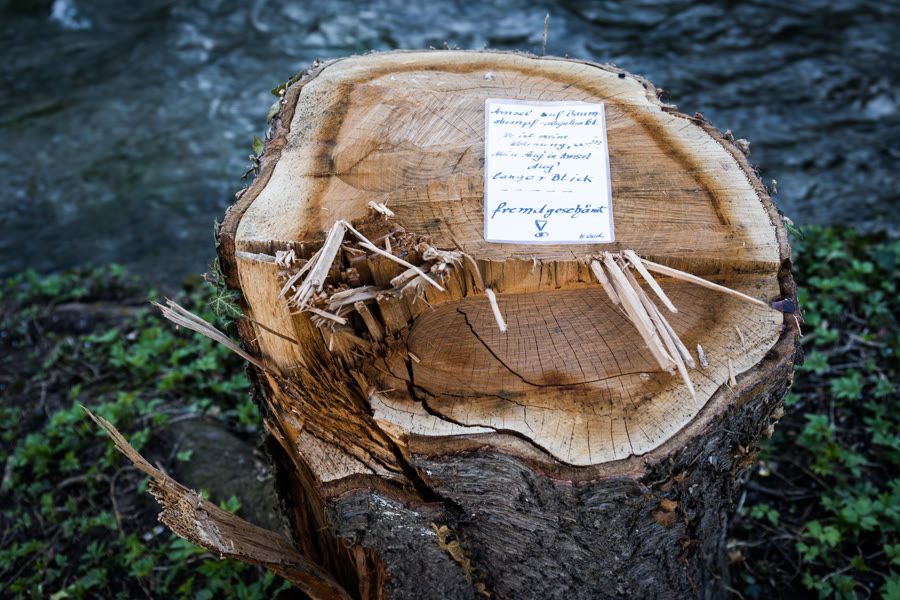 Amsel auf Baum-
stumpf abgehackt.
Wo ist meine
Wohnung, wo???
Mein Aug in Amsel
Aug'
langer Blick
- - - - -
fremdgeschämt